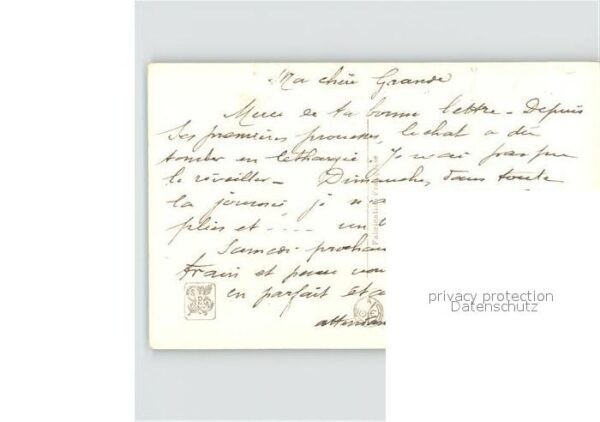 Ma chère Grande
Merci de ta bonne lettre - Depuis
ses premières prouesses, le chat a dû
tomber en léthargie. Je n'ai pas pu
le réveiller - Dimanche, dans toute
la journée, je n'a
plies et .... un
Samedi prochain
Frais et
en parfait état
attendan
Fabrication Fr
privacy protection
Datenschutz